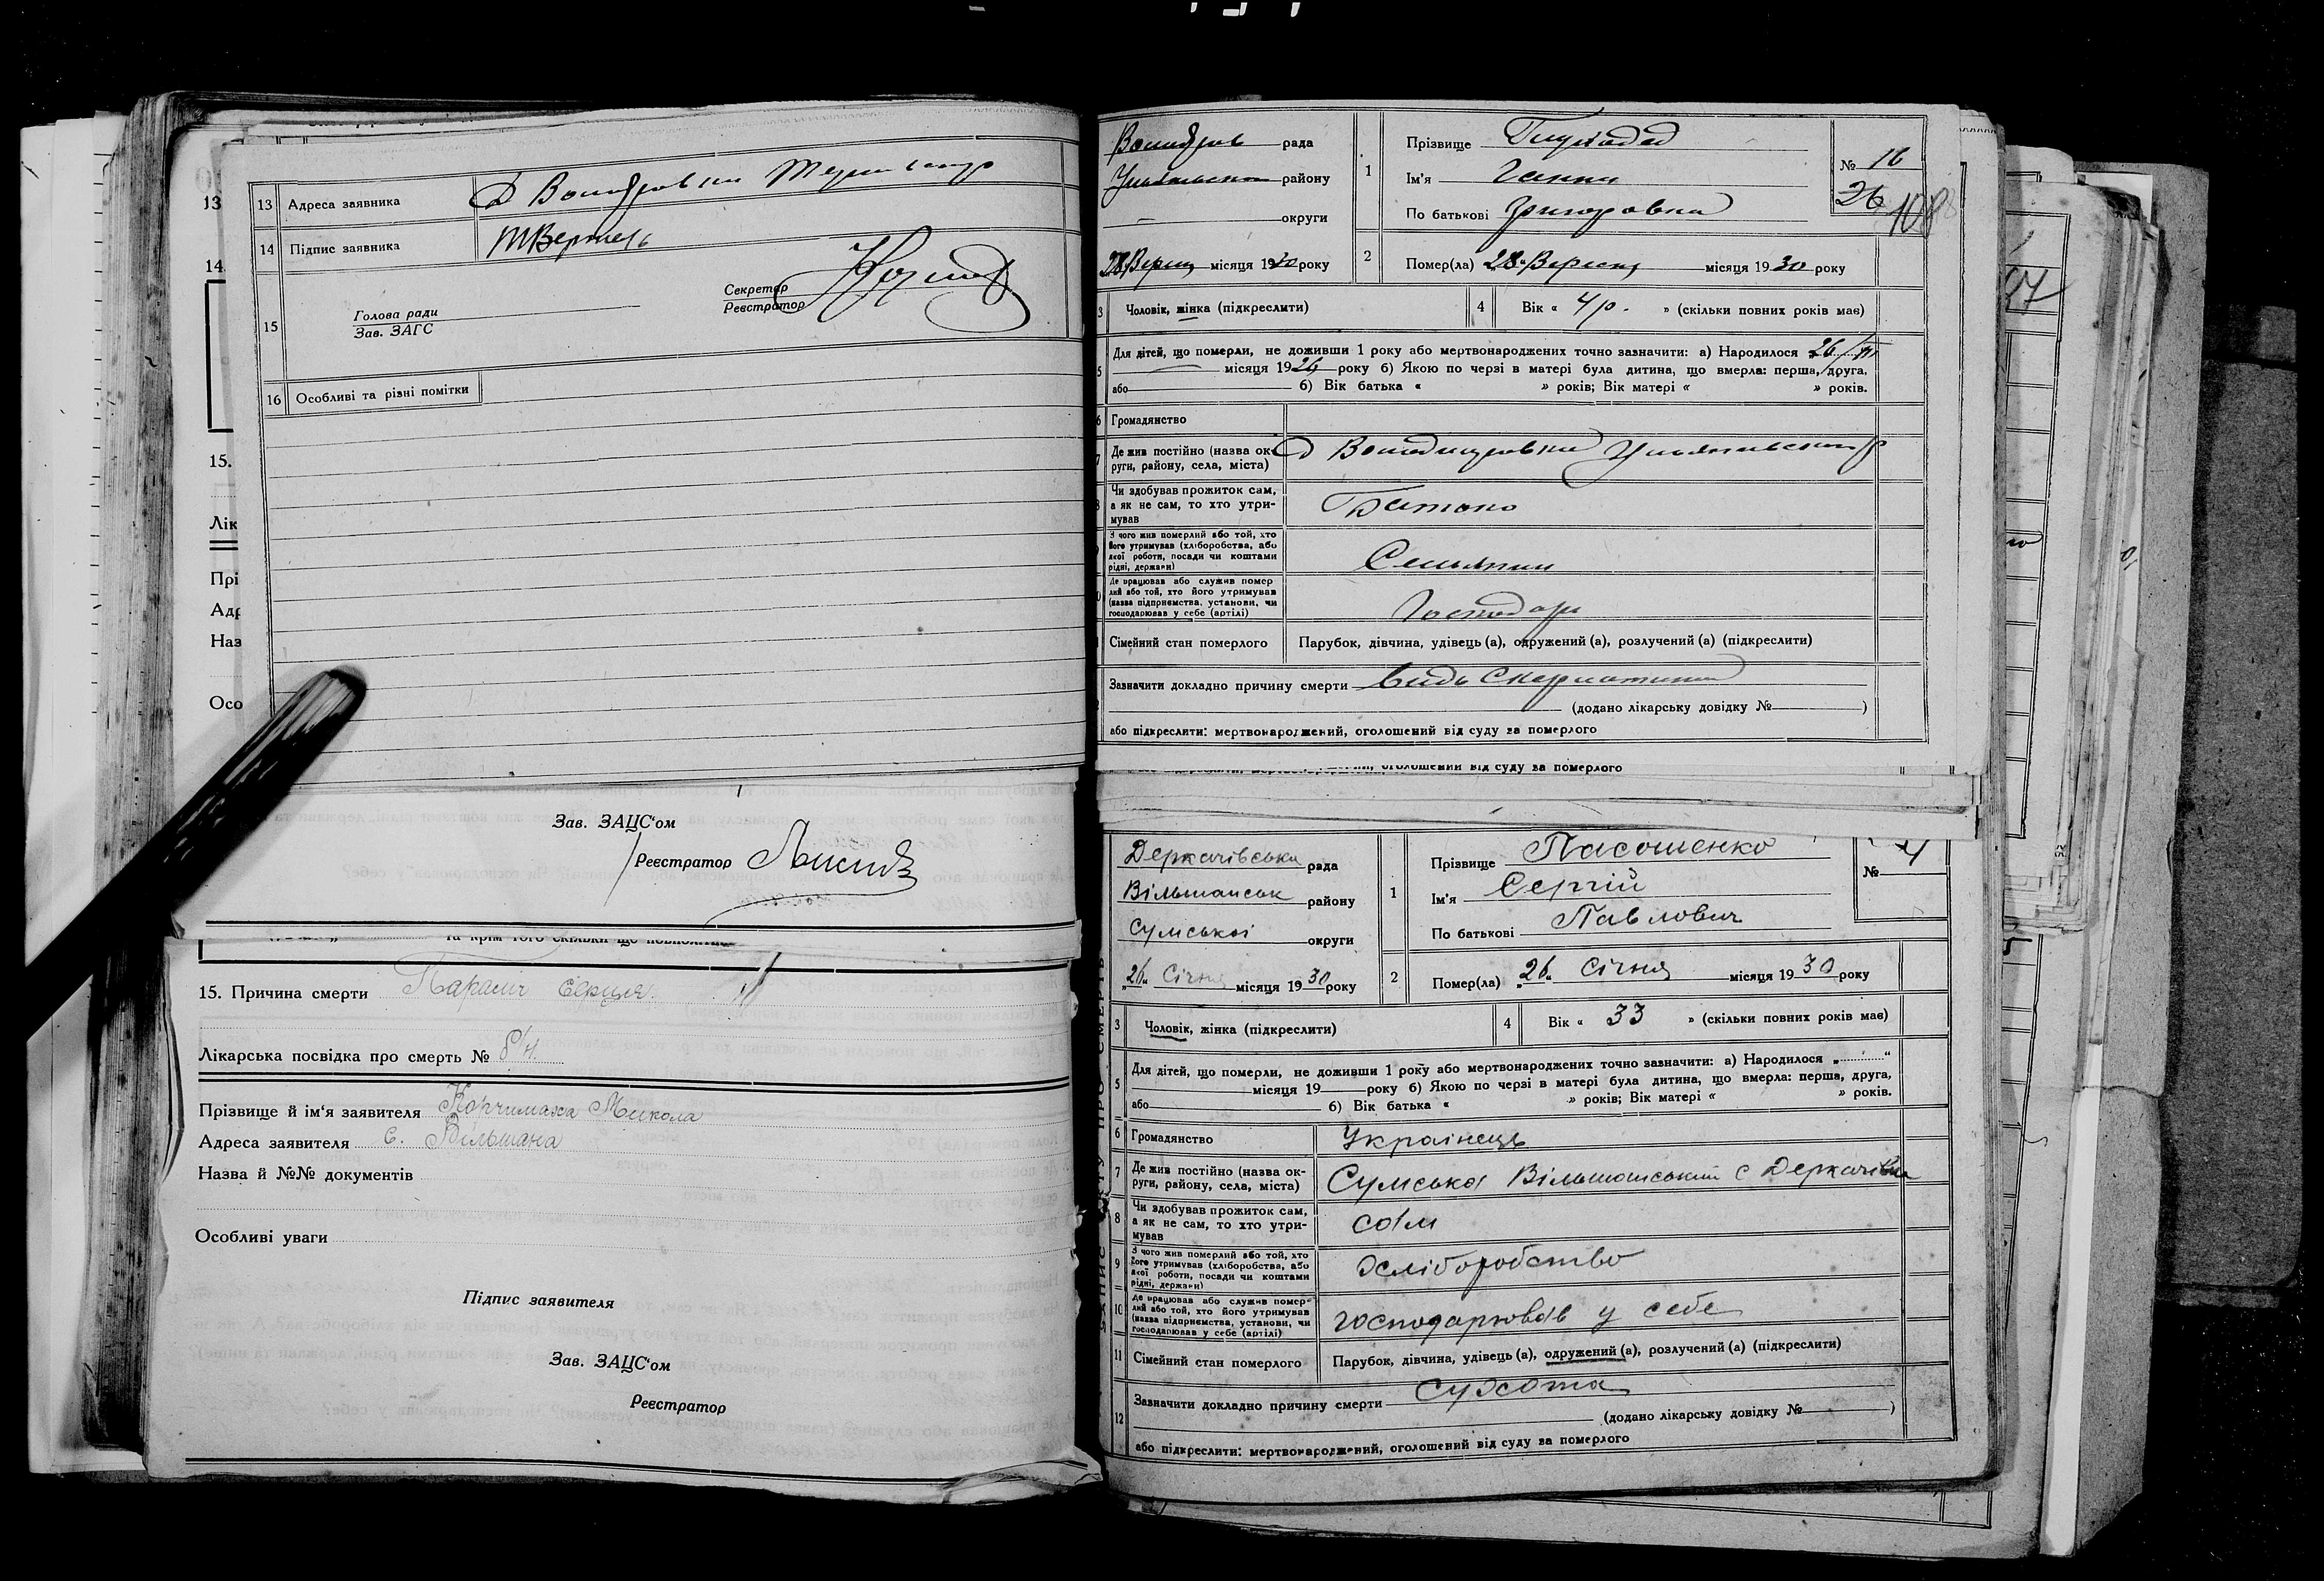 13 Адреса заявника Д
14 Підпис заявника
Голова ради
Зав. ЗАГС
Секретар
Реєстратор
15
16 Особливі та різні помітки
13
14.
15.
Лік
Прі
Адр
Наз
Осо
Зав. ЗАЦС'ом
Реєстратор
15. Причина смерти Параліч серця
Лікарська посвідка про смерть № б/н.
Прізвище й ім'я заявителя Корчимаха Микола
Адреса заявителя с. Вільшана
Назва й №№ документів
Особливі уваги
Підпис заявителя
Зав. ЗАЦС'ом
Реєстратор
рада
району
округи
1 Прізвище
Ім'я Ганна
По батькові Григоровна
№ 16
26
108
28 Верес місяця 1930 року
2 Помер(ла) 28 Вересня місяця 1930 року
3 Чоловік, жінка (підкреслити)
4 Вік « 4 р. » (скільки повних років має)
Для дітей, що померли, не доживши 1 року або мертвонароджених точно зазначити: а) Народилося 26/VI
5 місяця 1926 року б) Якою по черзі в матері була дитина, що вмерла: перша, друга,
або б) Вік батька « » років; Вік матері « » років.
6 Громадянство
7 Де жив постійно (назва округи, району, села, міста)
8 Чи здобував прожиток сам, а як не сам, то хто утримував Батько
З чого жив померлий або той, хто його утримував (хліборобства, або якої роботи, посади чи коштами рідні, держави) Сельянин
Де працював або служив померлий або той, хто його утримував (назва підприємства, установи, чи господарював у себе (артілі) Господар
Сімейний стан померлого Парубок, дівчина, удівець (а), одружений (а), розлучений (а) (підкреслити)
Зазначити докладно причину смерти видь Скерлатини
(додано лікарську довідку № )
або підкреслити: мертвонароджений, оголошений від суду за померлого
оголошений від суду за померлого
Деркачівська рада
Вільшанськ району
Сумської округи
1 Прізвище Пасошенко
Ім'я Сергій
По батькові Павлович
№ 4
„26“ Січня місяця 1930 року
2 Помер(ла) „26“ Січня місяця 1930 року
3 Чоловік, жінка (підкреслити)
4 Вік « 33 » (скільки повних років має)
Для дітей, що померли, не доживши 1 року або мертвонароджених точно зазначити: а) Народилося „ “
5 місяця 19 року б) Якою по черзі в матері була дитина, що вмерла: перша, друга,
або б) Вік батька « » років; Вік матері « » років.
6 Громадянство Українець
7 Де жив постійно (назва округи, району, села, міста) Сумська Вільшанський с Деркачівка
8 Чи здобував прожиток сам, а як не сам, то хто утримував сам
9 З чого жив померлий або той, хто його утримував (хліборобства, або якої роботи, посади чи коштами рідні, держави) Хліборобство
10 Де працював або служив померлий або той, хто його утримував (назва підприємства, установи, чи господарював у себе (артілі) господарював у себе
11 Сімейний стан померлого Парубок, дівчина, удівець (а), одружений (а), розлучений (а) (підкреслити)
12 Зазначити докладно причину смерти Сухота
(додано лікарську довідку № )
або підкреслити: мертвонароджений, оголошений від суду за померлого